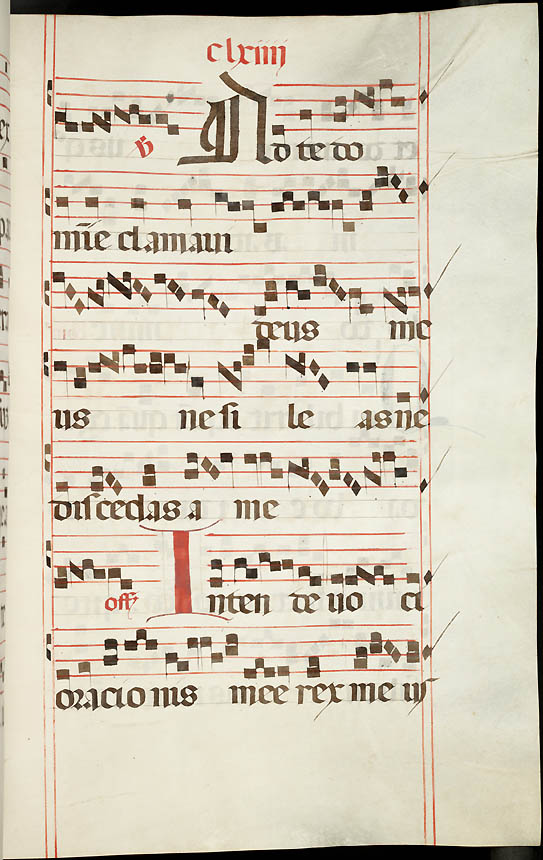 clxiiij
℣ Ad te do
mīe clamaui
deus me
us ne si le as ne
discedas a me
off Inten de uo ci
oracio nis mee rex me us